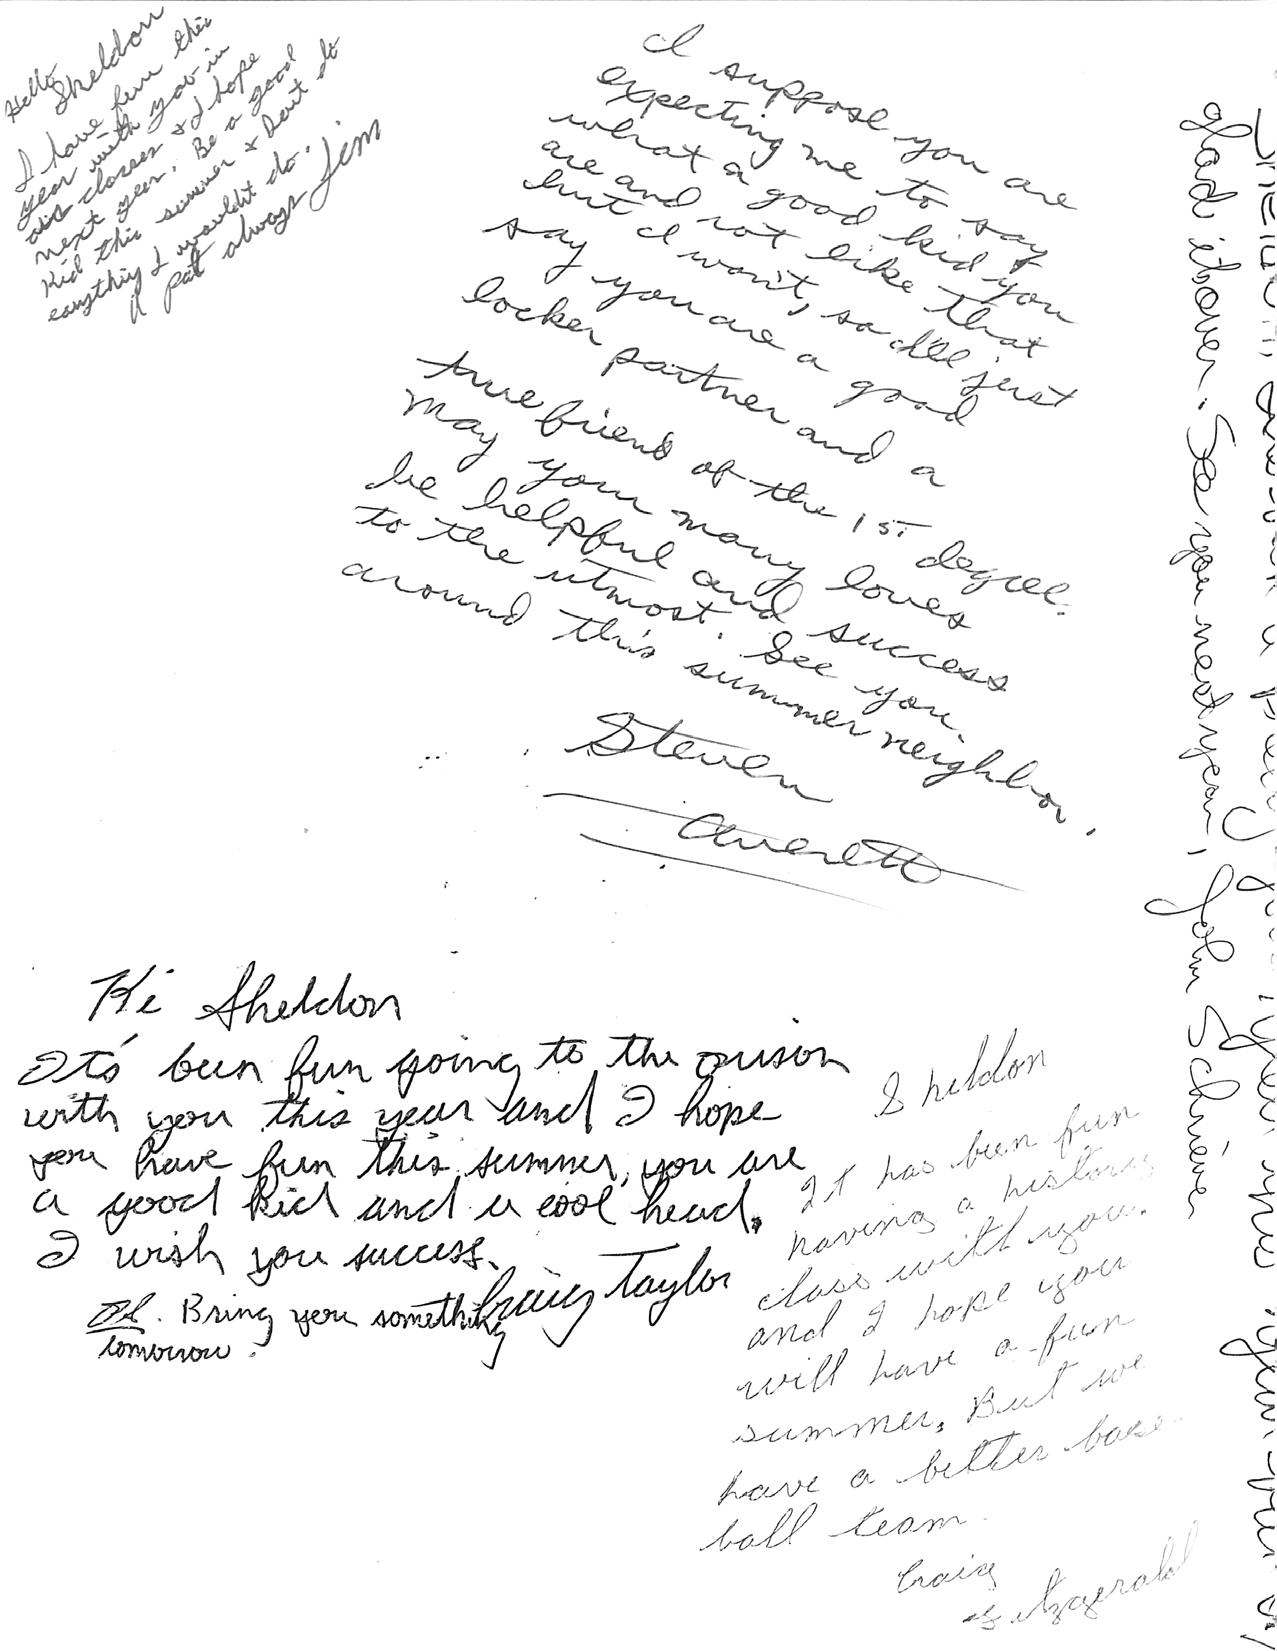 Hello
Sheldon
I have fun this
year with you in
our classes & I hope
next year. Be a good
Kid this summer & Dont do
eanything I wouldnt do.
A pal always Jim
I suppose you are
expecting me to say
what a good kid you
are and not like that
but I won't, so I'll just
say you are a good
locker partner and a
true friend of the 1st degree.
May your many loves
be helpful and success
to the utmost. See you
around this summer neighbor.
Steven
Averett
Hi Sheldon
Its been fun going to the prison
with you this year and I hope
you have fun this summer, you are
a good kid and a cool head.
I wish you success.
Craig Taylor
Ol. Bring you something
tomorrow.
Sheldon
It has been fun
having a history
class with you.
and I hope you
will have a fun
summer. But we
have a better base
ball team.
Craig
Fitzgerald
SHELDON, a pretty good year this year
glad it's over. See you next year, John Schrieve